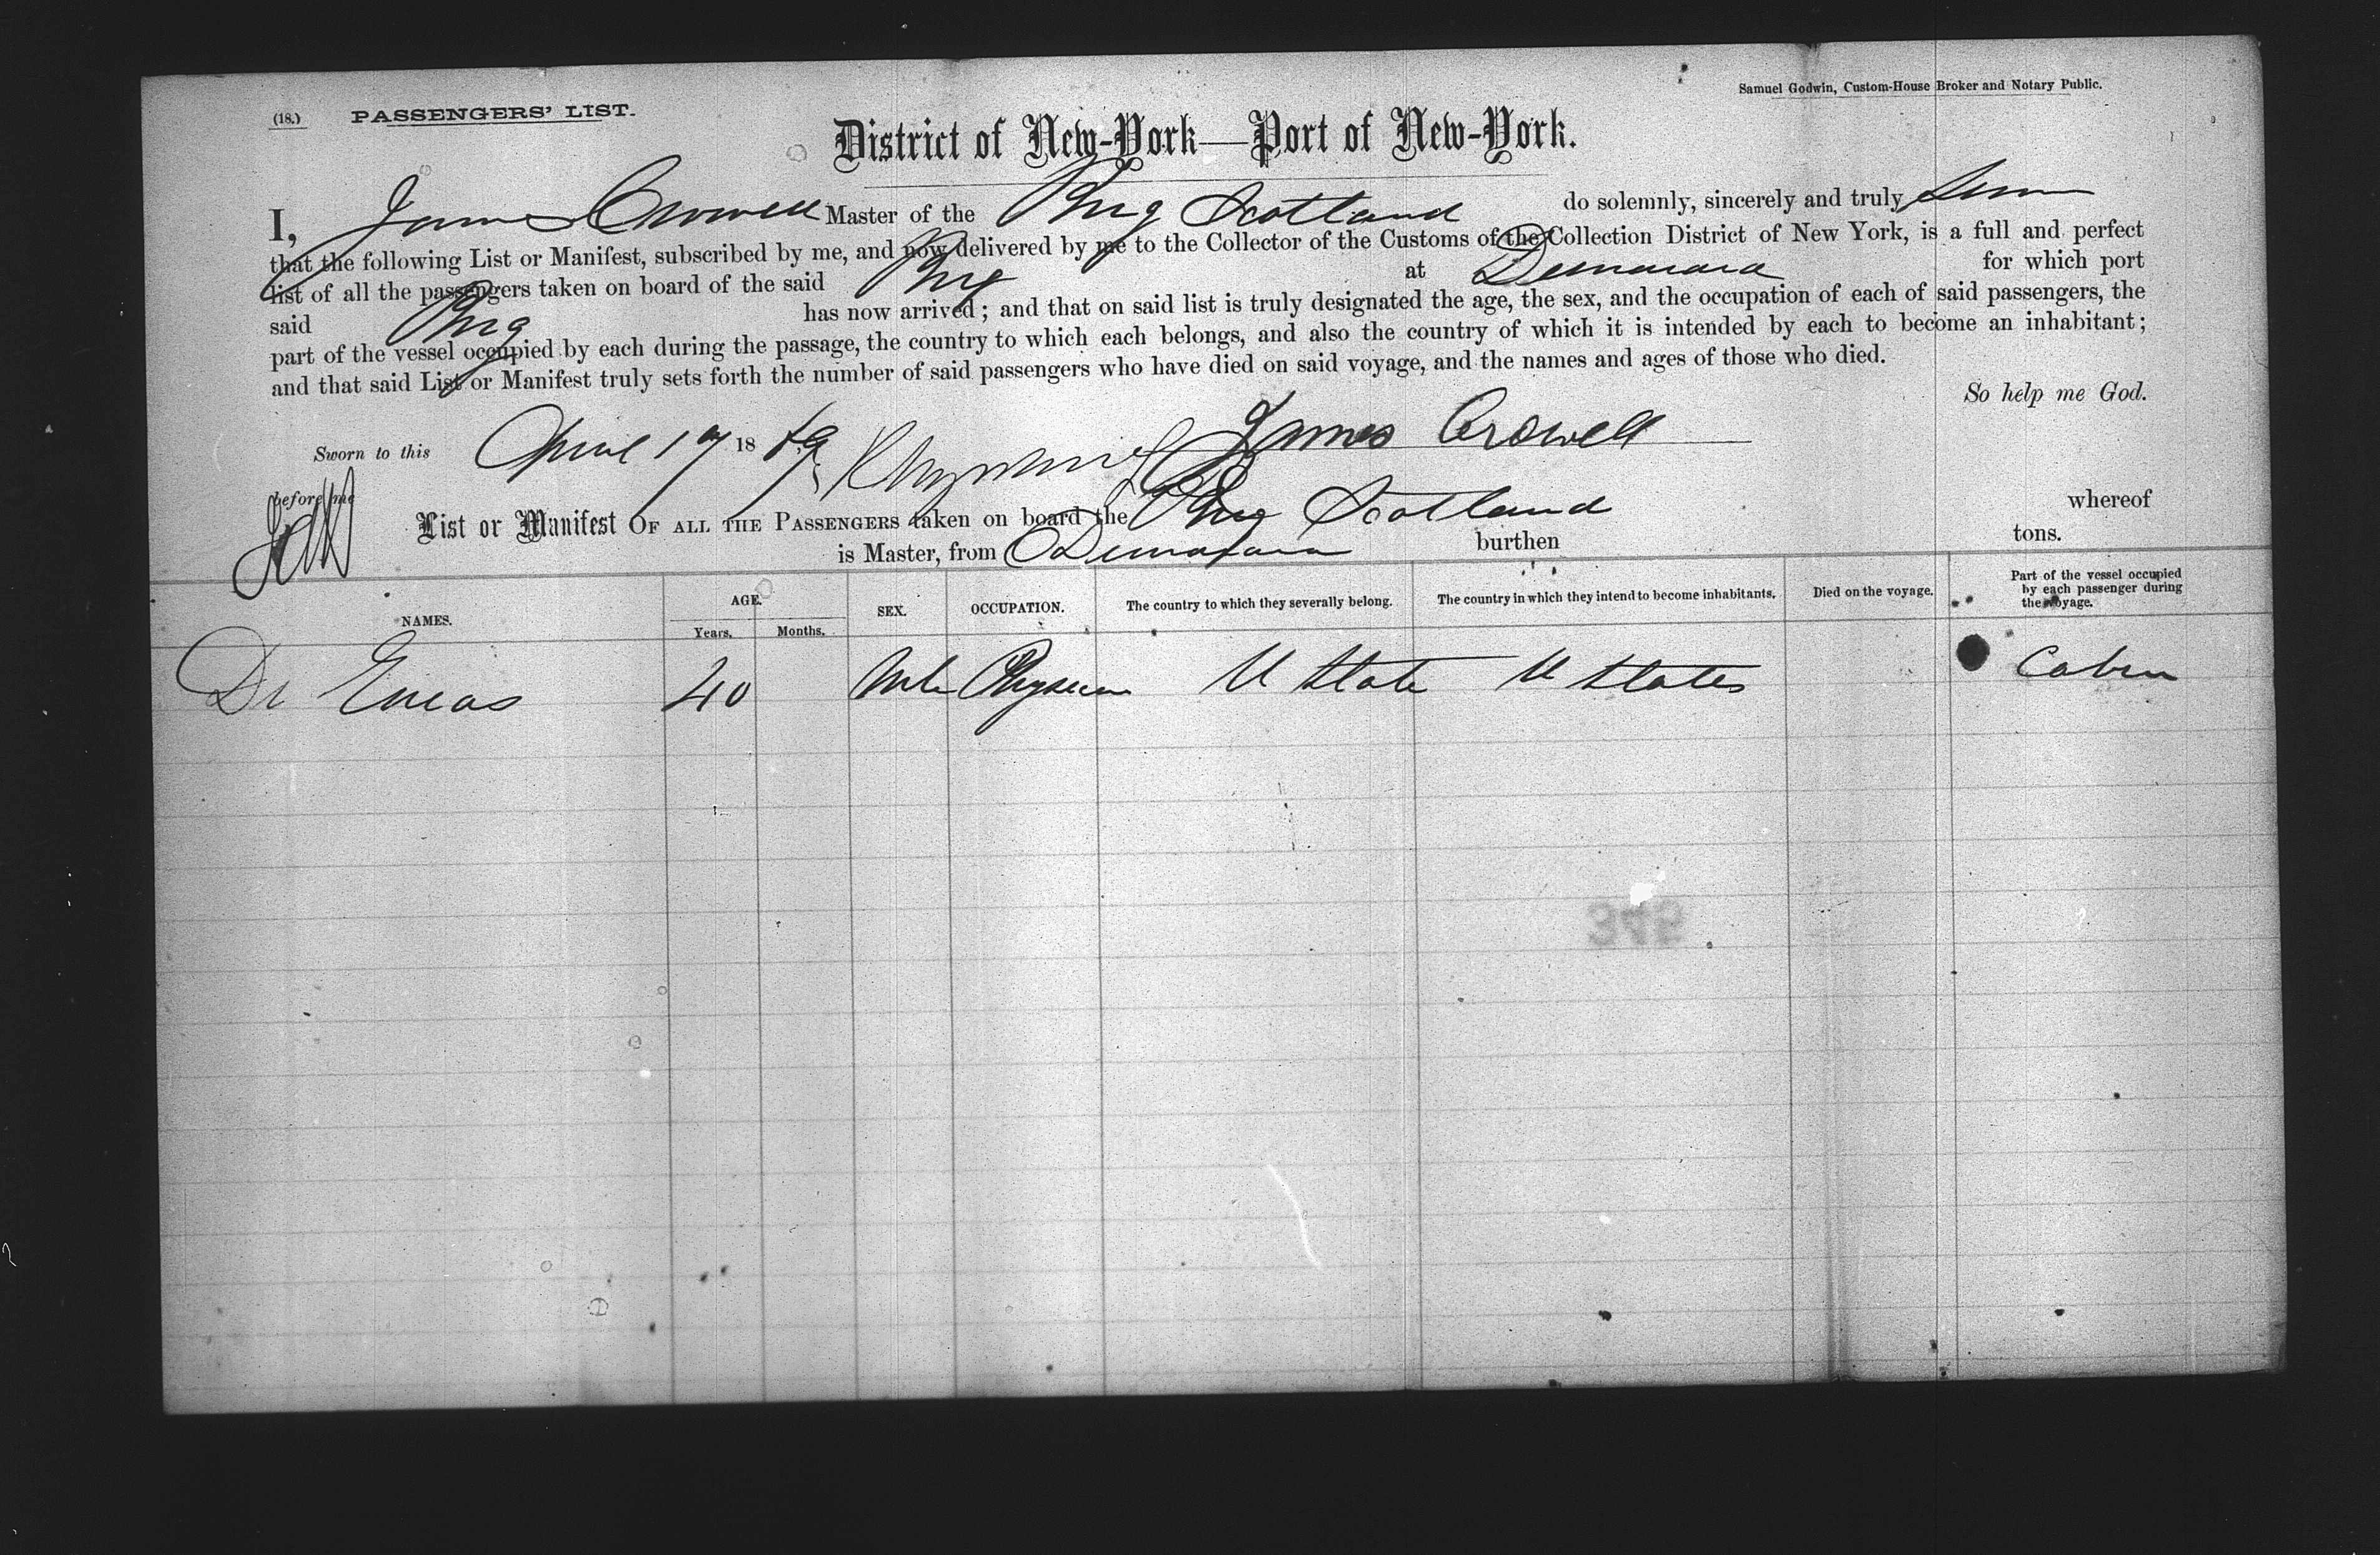 (18.) PASSENGERS' LIST.
Samuel Godwin, Custom-House Broker and Notary Public.
District of New-York—Port of New-York.
I, James Crowell Master of the Brig Scotland do solemnly, sincerely and truly
that the following List or Manifest, subscribed by me, and now delivered by me to the Collector of the Customs of the Collection District of New York, is a full and perfect
list of all the passengers taken on board of the said Brig at Demarara for which port
said Brig has now arrived; and that on said list is truly designated the age, the sex, and the occupation of each of said passengers, the
part of the vessel occupied by each during the passage, the country to which each belongs, and also the country of which it is intended by each to become an inhabitant;
and that said List or Manifest truly sets forth the number of said passengers who have died on said voyage, and the names and ages of those who died.
So help me God.
Sworn to this April 17 18 James Crowell
before me
List or Manifest OF ALL THE PASSENGERS taken on board the Brig Scotland whereof
is Master, from Demarara burthen tons.
NAMES. AGE. Years. Months. SEX. OCCUPATION. The country to which they severally belong. The country in which they intend to become inhabitants. Died on the voyage. Part of the vessel occupied by each passenger during the voyage.
Dr Eneas 40 Physician U State U States Cabin